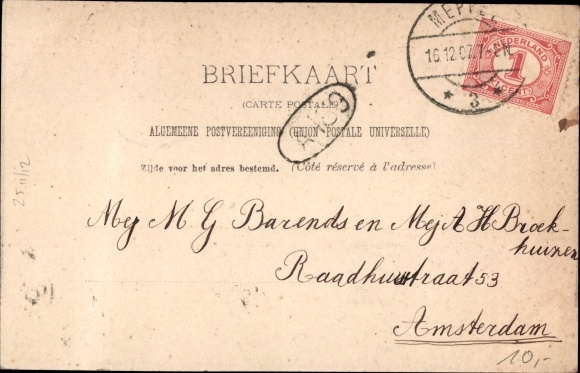 MEPPEL
16.12.07.7-8N
* 3 *
NEDERLAND
1
CENT
BRIEFKAART
(CARTE POSTALE)
ALGEMEENE POSTVEREENIGING (UNION POSTALE UNIVERSELLE)
Zijde voor het adres bestemd. (Côté réservé à l'adresse)
25 11/12
Mej M G Barends en Mej A H Broek-
huizen
Raadhuustraat 53
Amsterdam
10,-